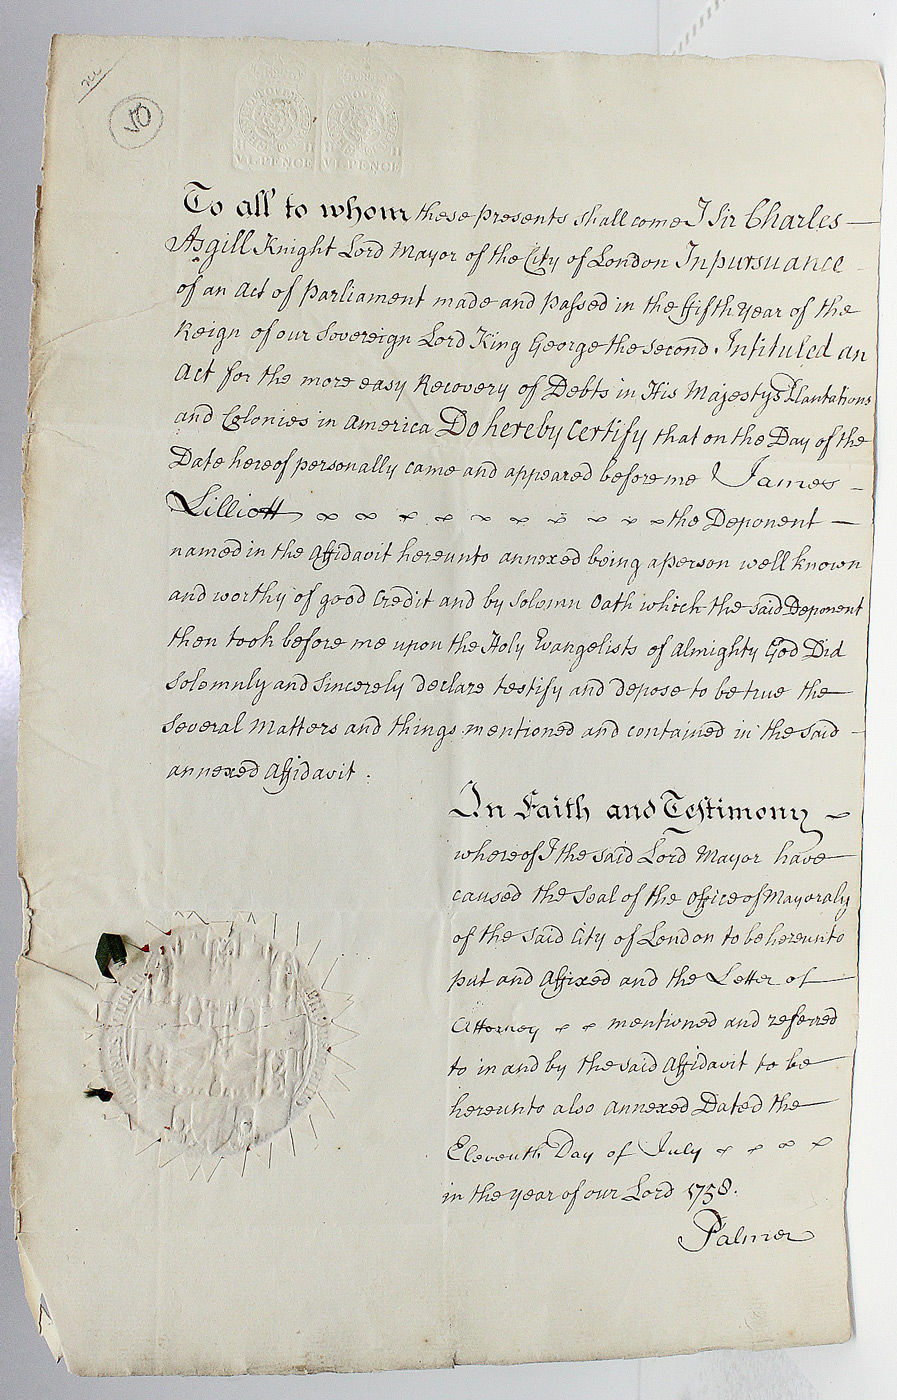 50
VI PENCE VI PENCE
To all to whom these presents shall come I Sir Charles
Asgill Knight Lord Mayor of the City of London In pursuance
of an Act of Parliament made and passed in the ffifth Year of the
Reign of our Sovereign Lord King George the Second Intituled an
Act for the more easy Recovery of Debts in His Majestys Plantations
and Colonies in America Do hereby Certify that on the Day of the
Date hereof personally came and appeared before me James
Lilliott the Deponent
named in the Affidavit hereunto annexed being a person well known
and worthy of good Credit and by Solemn Oath which the said Deponent
then took before me upon the Holy Evangelists of Almighty God Did
Solemnly and Sincerely declare testify and depose to be true the
Several Matters and things mentioned and contained in the said
annexed Affidavit.
In Faith and Testimony
whereof I the said Lord Mayor have
caused the Seal of the Office of Mayoralty
of the said City of London to be hereunto
put and Affixed and the Letter of
Attorney mentioned and referred
to in and by the said Affidavit to be
hereunto also annexed Dated the
Eleventh Day of July
in the Year of our Lord 1758.
Palmer